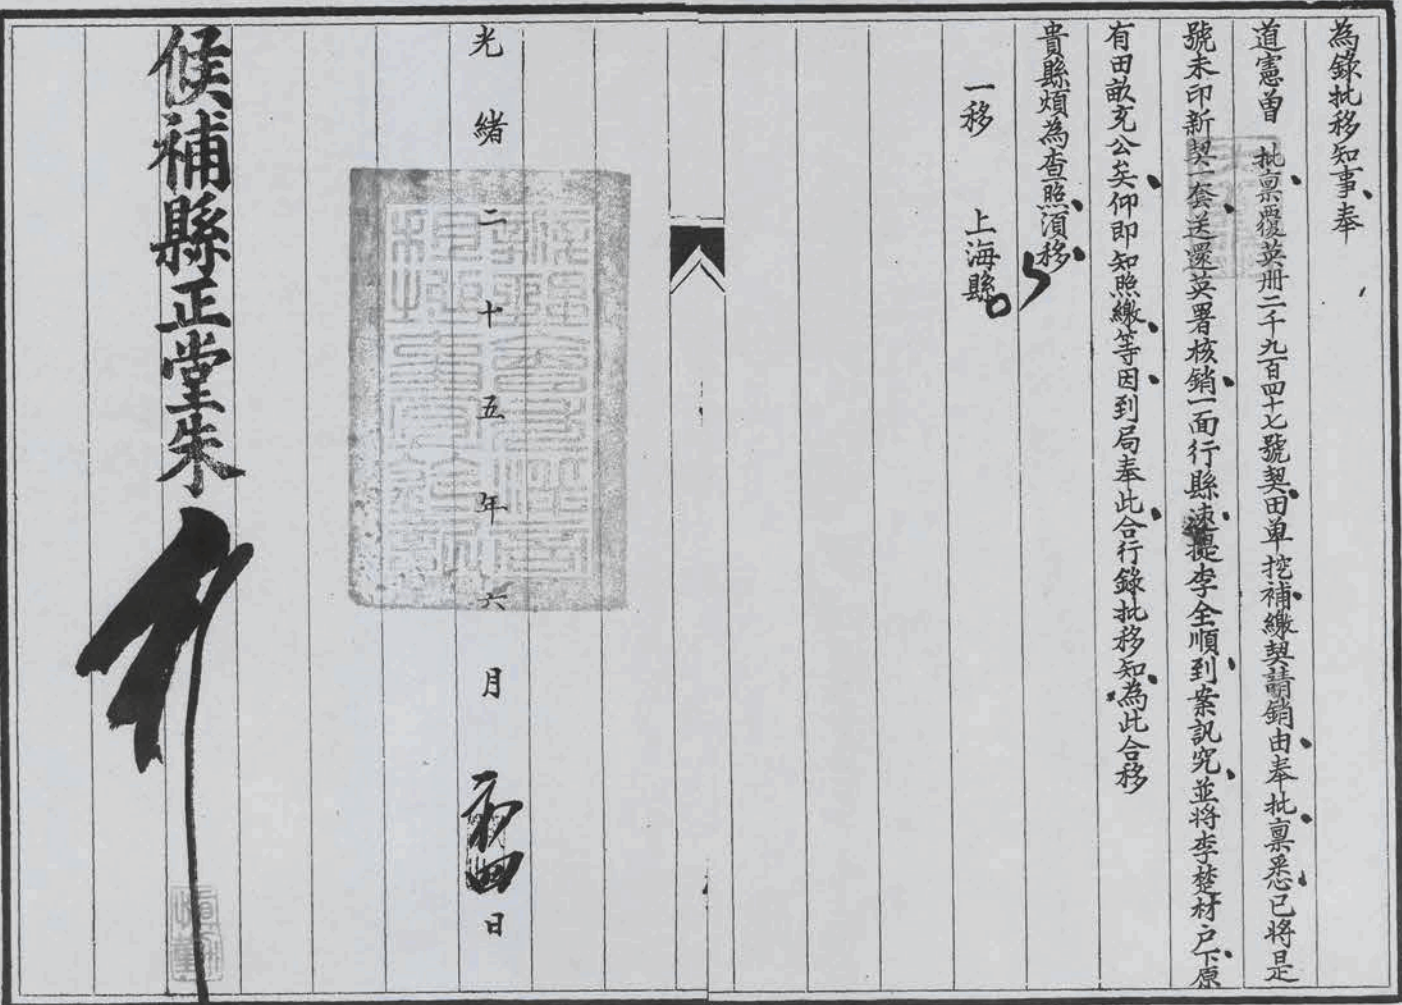 為錄批移知事奉
道憲曾 批稟覆英冊二千九百四十七號契田单挖補繳契請銷由奉批稟悉已將是
號未印新契一套送還英署核銷一面行縣速提李全順到案訊究並將李楚材户下原
有田畝充公矣仰即知照繳等因到局奉此合行錄批移知為此合移
貴縣煩為查照須移
一移 上海縣
光緒二十五年六月初四日
候補縣正堂朱